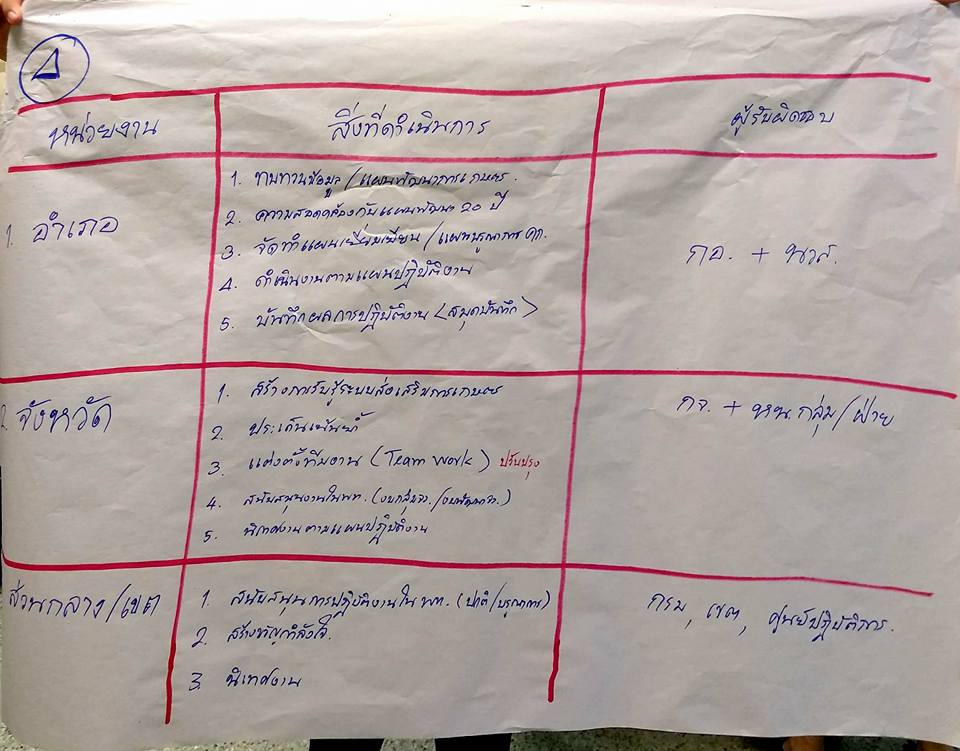 4
หน่วยงาน
สิ่งที่ดำเนินการ
ผู้รับผิดชอบ
1. อำเภอ
1. ทบทวนข้อมูล/แผนพัฒนาการเกษตร.
2. ความสอดคล้องกับแผนพัฒนา 20 ปี
3. จัดทำแผนเยี่ยมเยียน/แผนบูรณาการ ศก.
4. ดำเนินงานตามแผนปฏิบัติงาน
5. บันทึกผลการปฏิบัติงาน <สมุดบันทึก>
กอ. + นวส.
2. จังหวัด
1. สร้างการรับรู้ระบบส่งเสริมการเกษตร
2. ประเด็นเน้นย้ำ
3. แต่งตั้งทีมงาน (Team Work) ปรับปรุง
4. สนับสนุนงานใน พท. (งบกลุ่มจว./งบพัฒนาจว.)
5. นิเทศงานตามแผนปฏิบัติงาน
กจ. + หน.กลุ่ม/ฝ่าย
ส่วนกลาง/เขต
1. สนับสนุนการปฏิบัติงานใน พท. (ปกติ/บูรณาการ)
2. สร้างขวัญกำลังใจ.
3. นิเทศงาน
กรม, เขต, ศูนย์ปฏิบัติการ.